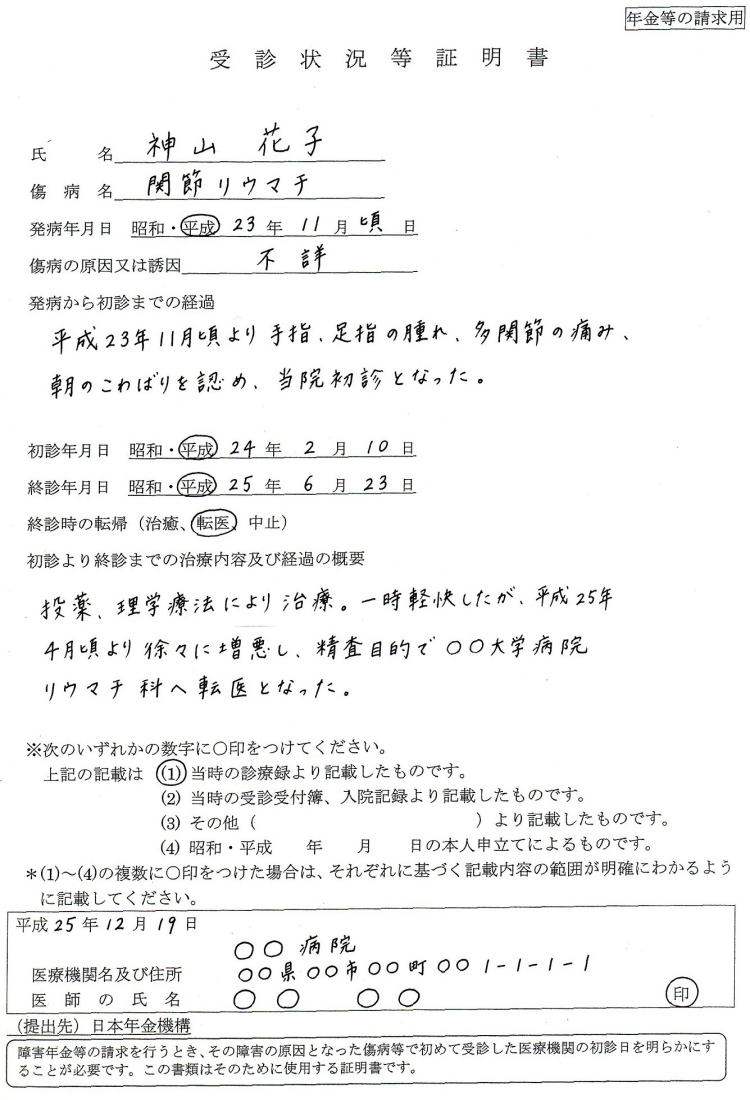 年金等の請求用
受診状況等証明書
氏名 神山 花子
傷病名 関節リウマチ
発病年月日 昭和・平成 23年 11月頃日
傷病の原因又は誘因 不詳
発病から初診までの経過
平成23年11月頃より手指、足指の腫れ、多関節の痛み、
朝のこわばりを認め、当院初診となった。
初診年月日 昭和・平成 24年 2月 10日
終診年月日 昭和・平成 25年 6月 23日
終診時の転帰（治癒、転医、中止）
初診より終診までの治療内容及び経過の概要
投薬、理学療法により治療。一時軽快したが、平成25年
4月頃より徐々に増悪し、精査目的で〇〇大学病院
リウマチ科へ転医となった。
※次のいずれかの数字に○印をつけてください。
上記の記載は (1) 当時の診療録より記載したものです。
(2) 当時の受診受付簿、入院記録より記載したものです。
(3) その他（　　　　　　　　　　）より記載したものです。
(4) 昭和・平成　　年　　月　　日の本人申立てによるものです。
＊(1)～(4)の複数に○印をつけた場合は、それぞれに基づく記載内容の範囲が明確にわかるよう
に記載してください。
平成25年12月19日
〇〇病院
医療機関名及び住所 〇〇県〇〇市〇〇町〇〇1-1-1-1
医師の氏名 〇〇 〇〇 印
（提出先）日本年金機構
障害年金等の請求を行うとき、その障害の原因となった傷病等で初めて受診した医療機関の初診日を明らかにす
ることが必要です。この書類はそのために使用する証明書です。